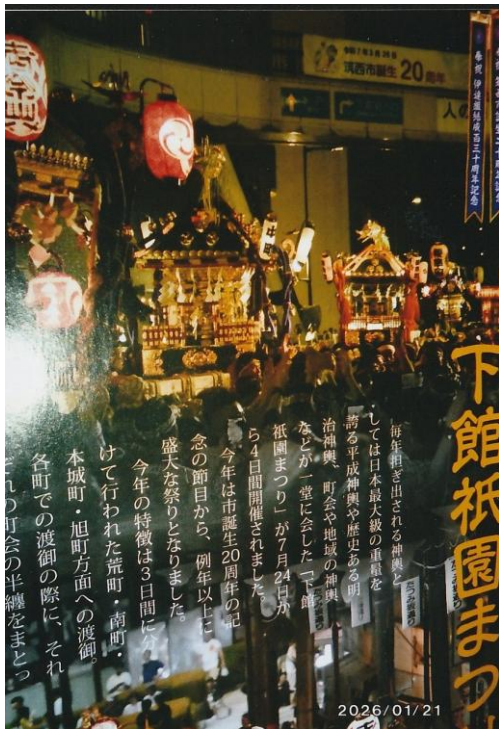 令和7年3月28日
筑西市誕生20周年
人の
伊達組結成百三十周年記念
中町
下館祇園まつ
毎年担ぎ出される神輿と
しては日本最大級の重量を
誇る平成神輿や歴史ある明
治神輿、町会や地域の神輿
などが一堂に会した「下館
祇園まつり」が7月24日か
ら4日間開催されました。
今年は市誕生20周年の記
念の節目から、例年以上に
盛大な祭りとなりました。
今年の特徴は3日間に分
けて行われた荒町・南町・
本城町・旭町方面への渡御。
各町での渡御の際に、それ
ぞれの町会の半纏をまとっ
たつみ表通り
2026/01/21